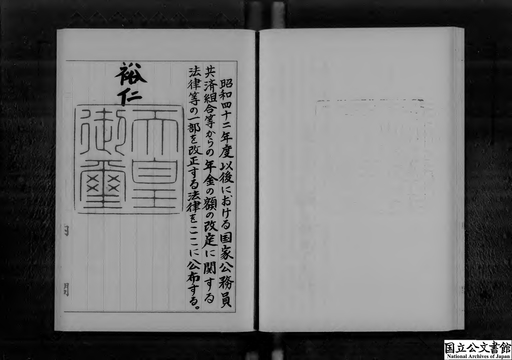 昭和四十二年度以後における国家公務員
共済組合等からの年金の額の改定に関する
法律等の一部を改正する法律をここに公布する。
裕仁
天皇
御璽
国立公文書館
National Archives of Japan